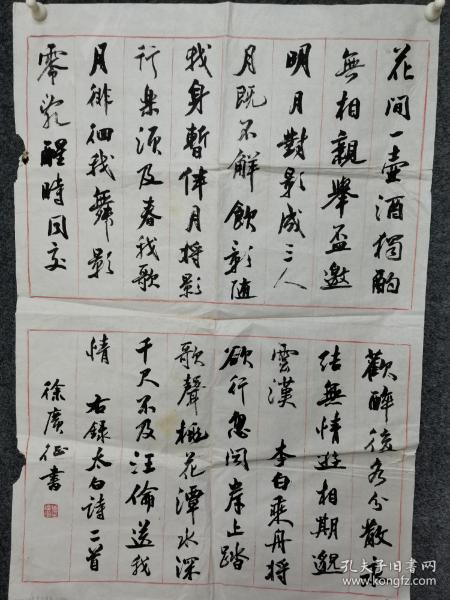 花间一壶酒独酌
無相親舉盃邀
明月對影成三人
月既不解飲影随
我身暫伴月将影
行樂须及春我歌
月徘徊我舞影
零亂醒時同交
歡醉後各分散永
结無情遊相期邈
雲漢 李白乘舟将
欲行忽闻岸上踏
歌聲桃花潭水深
千尺不及汪倫送我
情 右錄太白詩二首
徐廣征書
孔夫子旧书网
www.kongfz.com